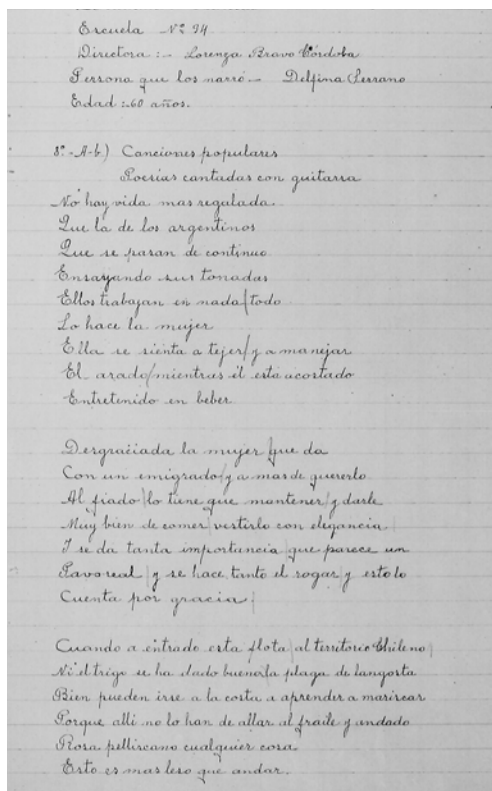 Escuela Nº 94
Directora :- Lorenza Bravo Córdoba
Persona que los narró.- Delfina Serrano
Edad :-60 años.
8º.-A-b) Canciones populares
Poesías cantadas con guitarra
No hay vida mas regalada.
Que la de los argentinos
Que se pasan de continuo
Ensayando sus tonadas
Ellos trabajan en nada/todo
Lo hace la mujer
Ella se sienta a tejer/y a manejar
El arado/mientras él está acostado
Entretenido en beber
Desgraciada la mujer/que da
Con un emigrado/y a mas de quererlo
Al fiado/lo tiene que mantener/y darle
Muy bien de comer/vestirlo con elegancia/
I se da tanta importancia/que parece un
Pavo real/y se hace tanto el rogar/y esto lo
Cuenta por gracia/
Cuando a entrado esta flota/al territorio Chileno/
Ni el trigo se ha dado bueno/la plaga de langosta
Bien pueden irse a la costa a aprender a mariscar
Porque alli no lo han de allar al fraile y andado
Rosa pelliscano cualquier cosa
Esto es mas leso que andar.